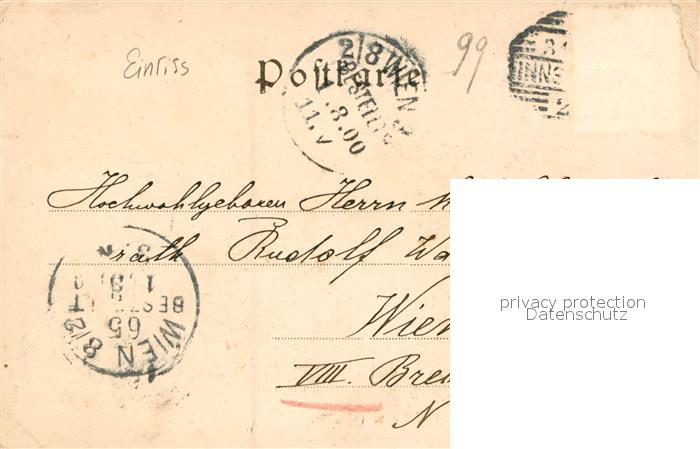 Einriss
Postkarte
99
2/8 WIEN
BESTELLT
.8.00
11.V
INNS
Hochwohlgeboren Herrn
rath Rudolf Wa
Wien
VIII. Bre
N
WIEN 8/2
65
BEST
privacy protection
Datenschutz